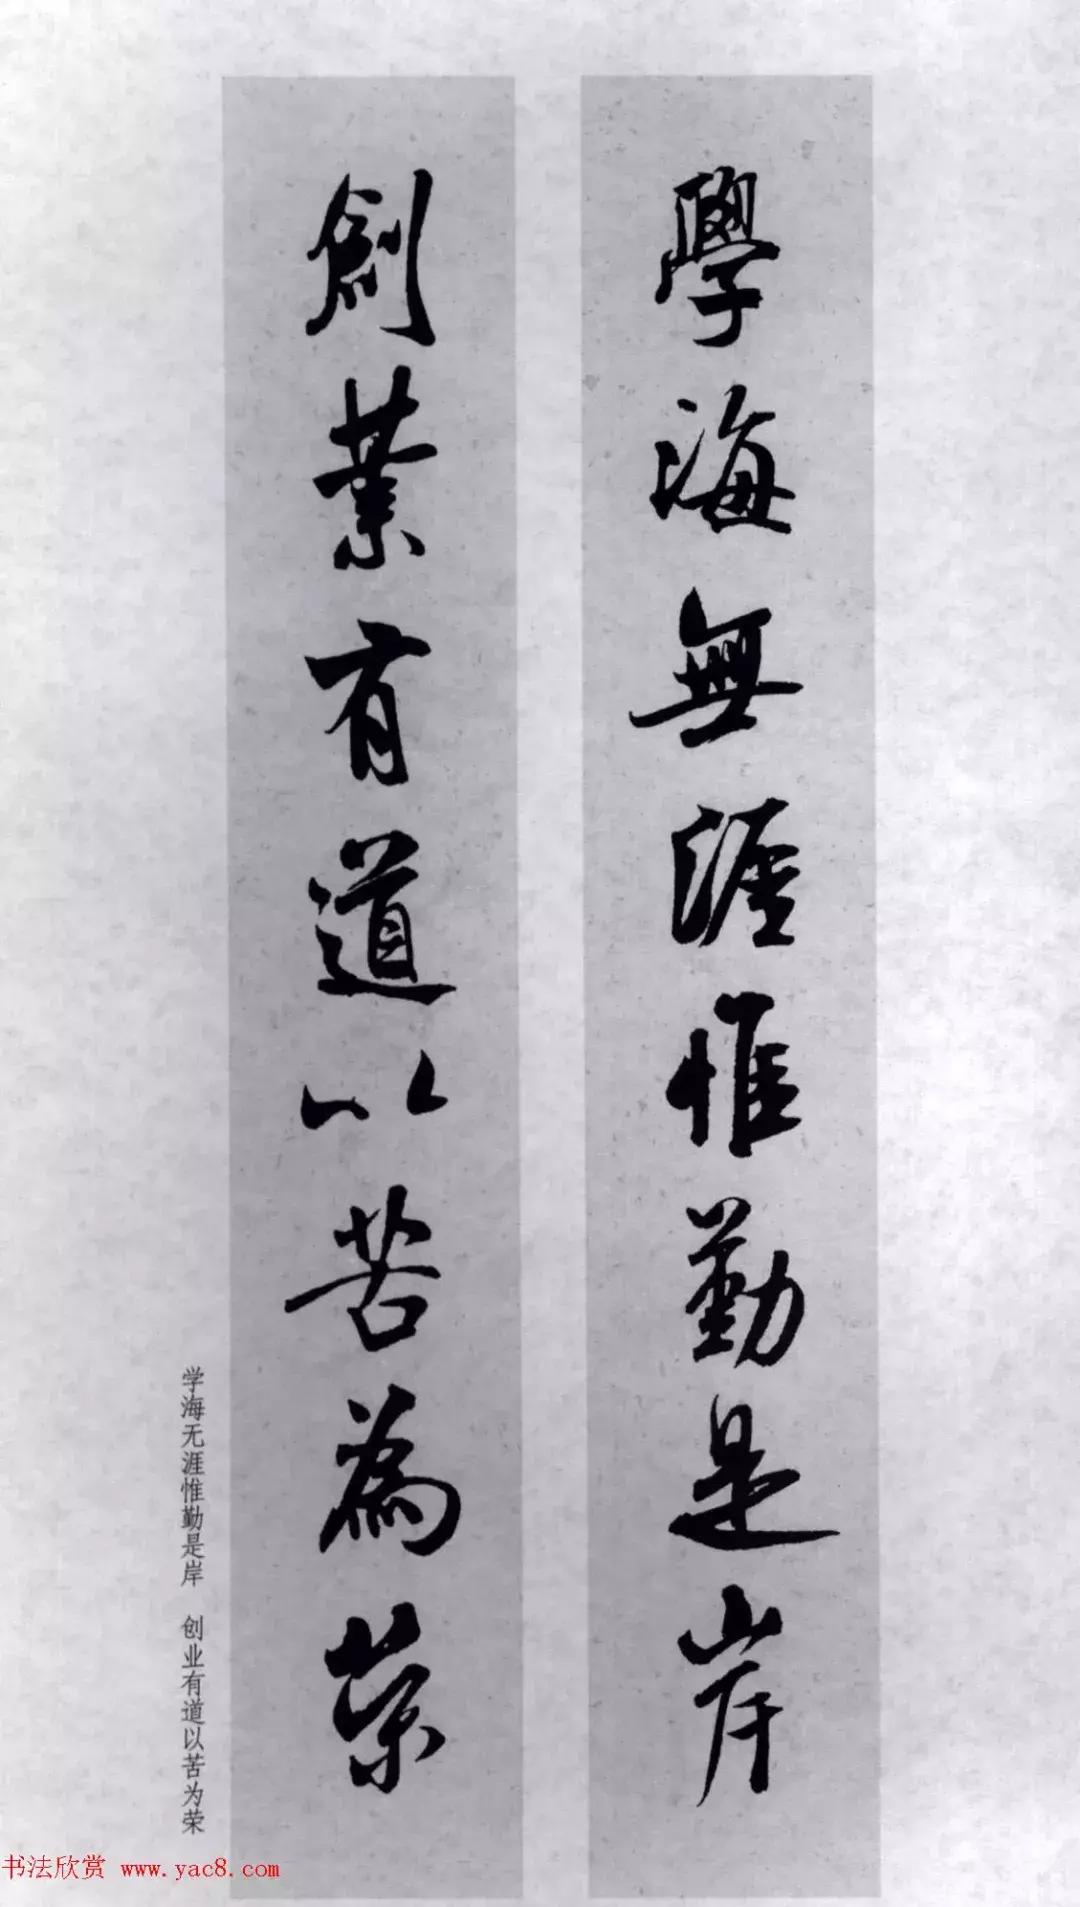 學海無涯惟勤是岸
創業有道以苦為榮
学海无涯惟勤是岸 创业有道以苦为荣
书法欣赏 www.yac8.com